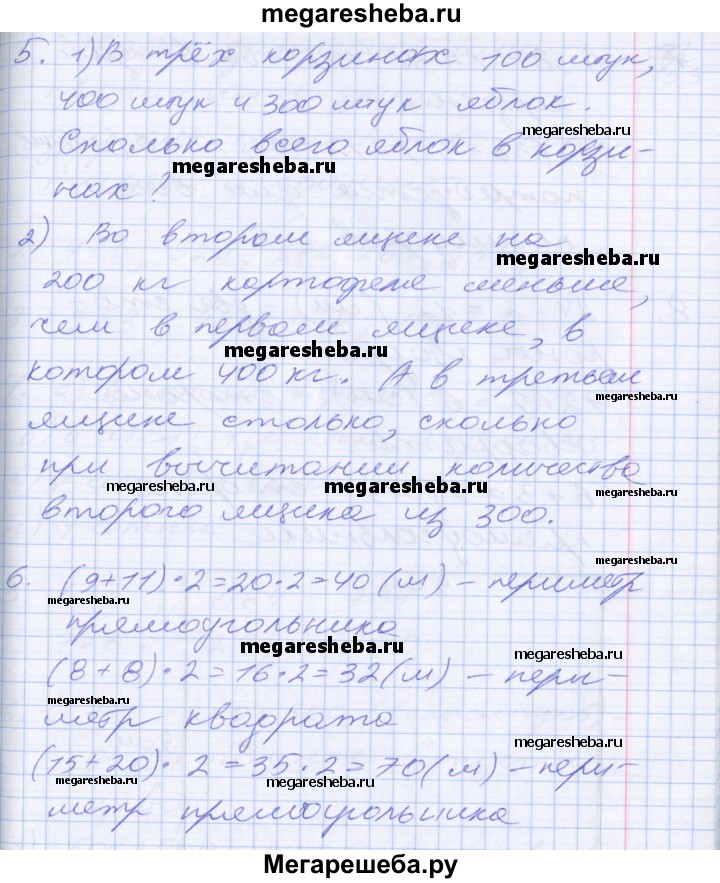 megaresheba.ru
5. 1) В трёх корзинах 100 штук,
400 штук и 300 штук яблок.
megaresheba.ru
Сколько всего яблок в корзи-
megaresheba.ru
нах?
2) Во втором ящике на
megaresheba.ru
200 кг картофеля меньше,
чем в первом ящике, в
megaresheba.ru
котором 400 кг. А в третьем
megaresheba.ru
ящике столько, сколько
при вычитании количества
megaresheba.ru megaresheba.ru megaresheba.ru
второго ящика из 300.
megaresheba.ru
6. (9+11)·2=20·2=40(м) – периметр
megaresheba.ru
прямоугольника
megaresheba.ru megaresheba.ru
(8+8)·2=16·2=32(м) – пери-
megaresheba.ru
метр квадрата
megaresheba.ru
(15+20)·2=35·2=70(м) – пери-
megaresheba.ru megaresheba.ru megaresheba.ru
метр прямоугольника
Мегарешеба.ру